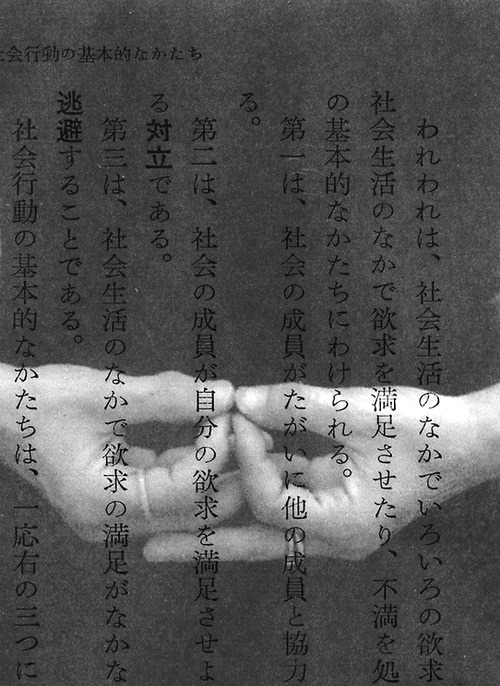 社会行動の基本的なかたち
われわれは、社会生活のなかでいろいろの欲求
社会生活のなかで欲求を満足させたり、不満を処
の基本的なかたちにわけられる。
第一は、社会の成員がたがいに他の成員と協力
る。
第二は、社会の成員が自分の欲求を満足させよ
る対立である。
第三は、社会生活のなかで欲求の満足がなかな
逃避することである。
社会行動の基本的なかたちは、一応右の三つに